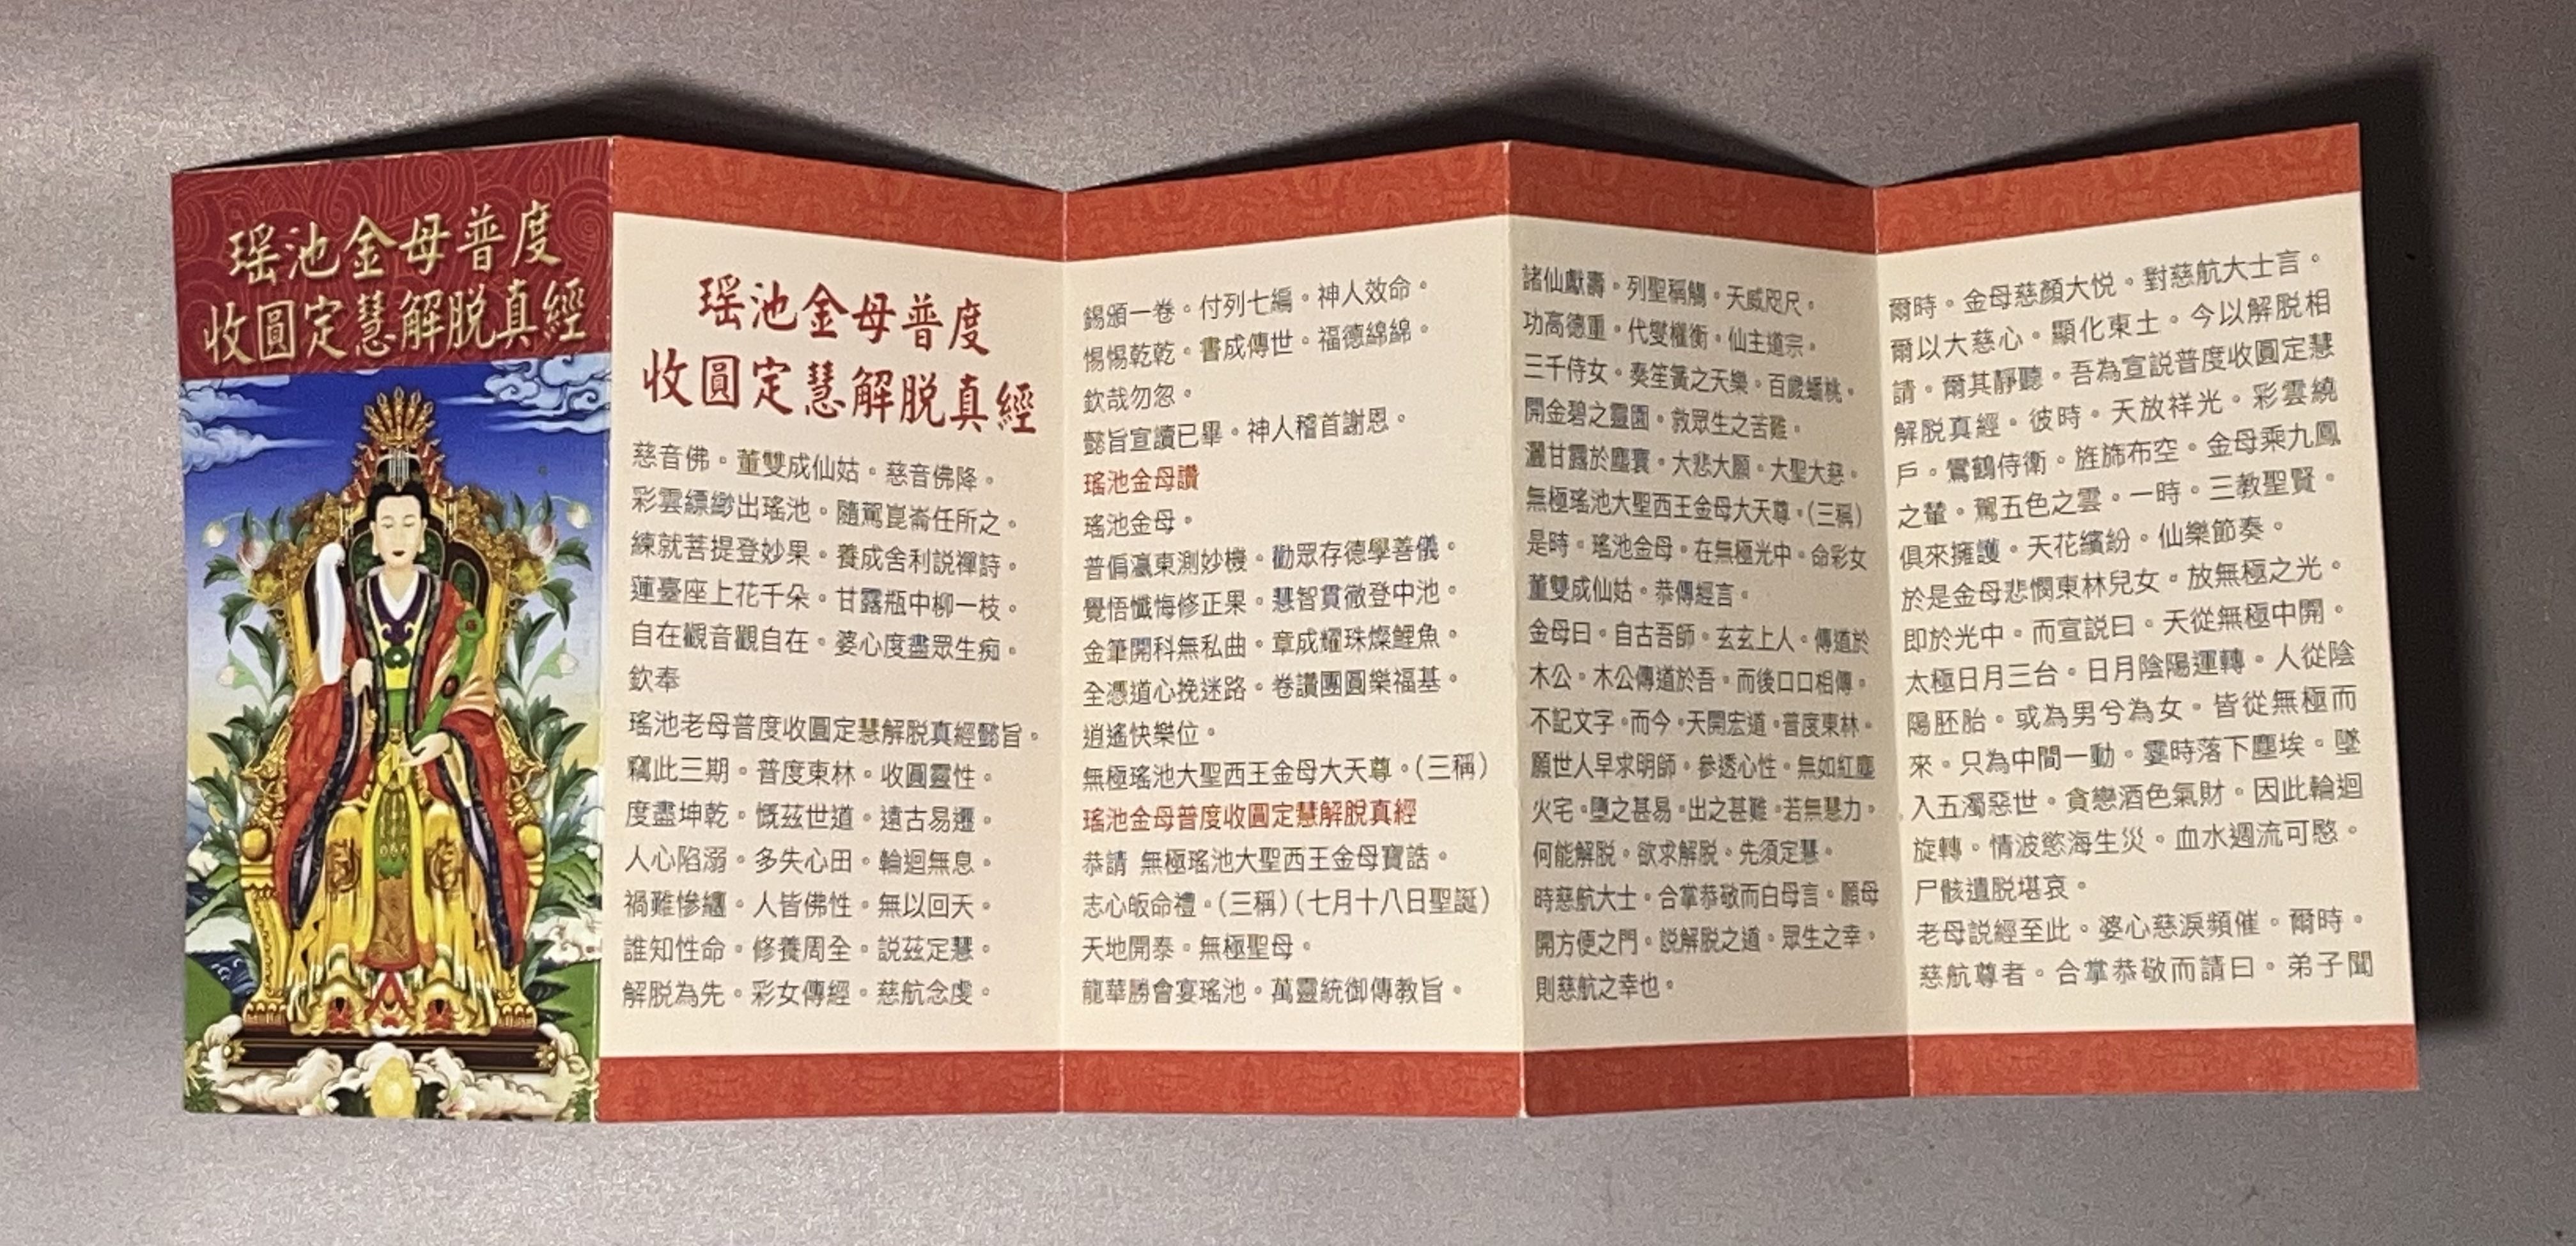 瑶池金母普度
收圓定慧解脱真經
瑶池金母普度
收圓定慧解脱真經
慈音佛。董雙成仙姑。慈音佛降。
彩雲縹緲出瑤池。隨駕崑崙任所之。
練就菩提登妙果。養成舍利説禪詩。
蓮臺座上花千朵。甘露瓶中柳一枝。
自在觀音觀自在。婆心度盡眾生痴。
欽奉
瑤池老母普度收圓定慧解脱真經懿旨。
竊此三期。普度東林。收圓靈性。
度盡坤乾。慨茲世道。遠古易遷。
人心陷溺。多失心田。輪迴無息。
禍難慘纏。人皆佛性。無以回天。
誰知性命。修養周全。説茲定慧。
解脱為先。彩女傳經。慈航念虔。
錫頒一卷。付列七編。神人效命。
惕惕乾乾。書成傳世。福德綿綿。
欽哉勿忽。
懿旨宣讀已畢。神人稽首謝恩。
瑤池金母讚
瑤池金母。
普徧瀛東測妙機。勸眾存德學善儀。
覺悟懺悔修正果。慧智貫徹登中池。
金筆開科無私曲。章成耀珠燦鯉魚。
全憑道心挽迷路。卷讚團圓樂福基。
逍遙快樂位。
無極瑤池大聖西王金母大天尊。(三稱)
瑤池金母普度收圓定慧解脱真經
恭請 無極瑤池大聖西王金母寶誥。
志心皈命禮。(三稱)(七月十八日聖誕)
天地開泰。無極聖母。
龍華勝會宴瑤池。萬靈統御傳教旨。
諸仙獻壽。列聖稱觴。天威咫尺。
功高德重。代燮權衡。仙主道宗。
三千侍女。奏笙簧之天樂。百歲蟠桃。
開金碧之靈園。救眾生之苦難。
灑甘露於塵寰。大悲大願。大聖大慈。
無極瑤池大聖西王金母大天尊。(三稱)
是時。瑤池金母。在無極光中。命彩女
董雙成仙姑。恭傳經言。
金母曰。自古吾師。玄玄上人。傳道於
木公。木公傳道於吾。而後口口相傳。
不記文字。而今。天開宏道。普度東林。
願世人早求明師。參透心性。無如紅塵
火宅。墮之甚易。出之甚難。若無慧力。
何能解脱。欲求解脱。先須定慧。
時慈航大士。合掌恭敬而白母言。願母
開方便之門。説解脱之道。眾生之幸。
則慈航之幸也。
爾時。金母慈顏大悦。對慈航大士言。
爾以大慈心。顯化東土。今以解脱相
請。爾其靜聽。吾為宣説普度收圓定慧
解脱真經。彼時。天放祥光。彩雲繞
戶。鸞鶴侍衛。旌旆布空。金母乘九鳳
之輦。駕五色之雲。一時。三教聖賢。
俱來擁護。天花繽紛。仙樂節奏。
於是金母悲憫東林兒女。放無極之光。
即於光中。而宣説曰。天從無極中開。
太極日月三台。日月陰陽運轉。人從陰
陽胚胎。或為男兮為女。皆從無極而
來。只為中間一動。霎時落下塵埃。墜
入五濁惡世。貪戀酒色氣財。因此輪迴
旋轉。情波慾海生災。血水週流可愍。
尸骸遺脱堪哀。
老母説經至此。婆心慈淚頻催。爾時。
慈航尊者。合掌恭敬而請曰。弟子聞